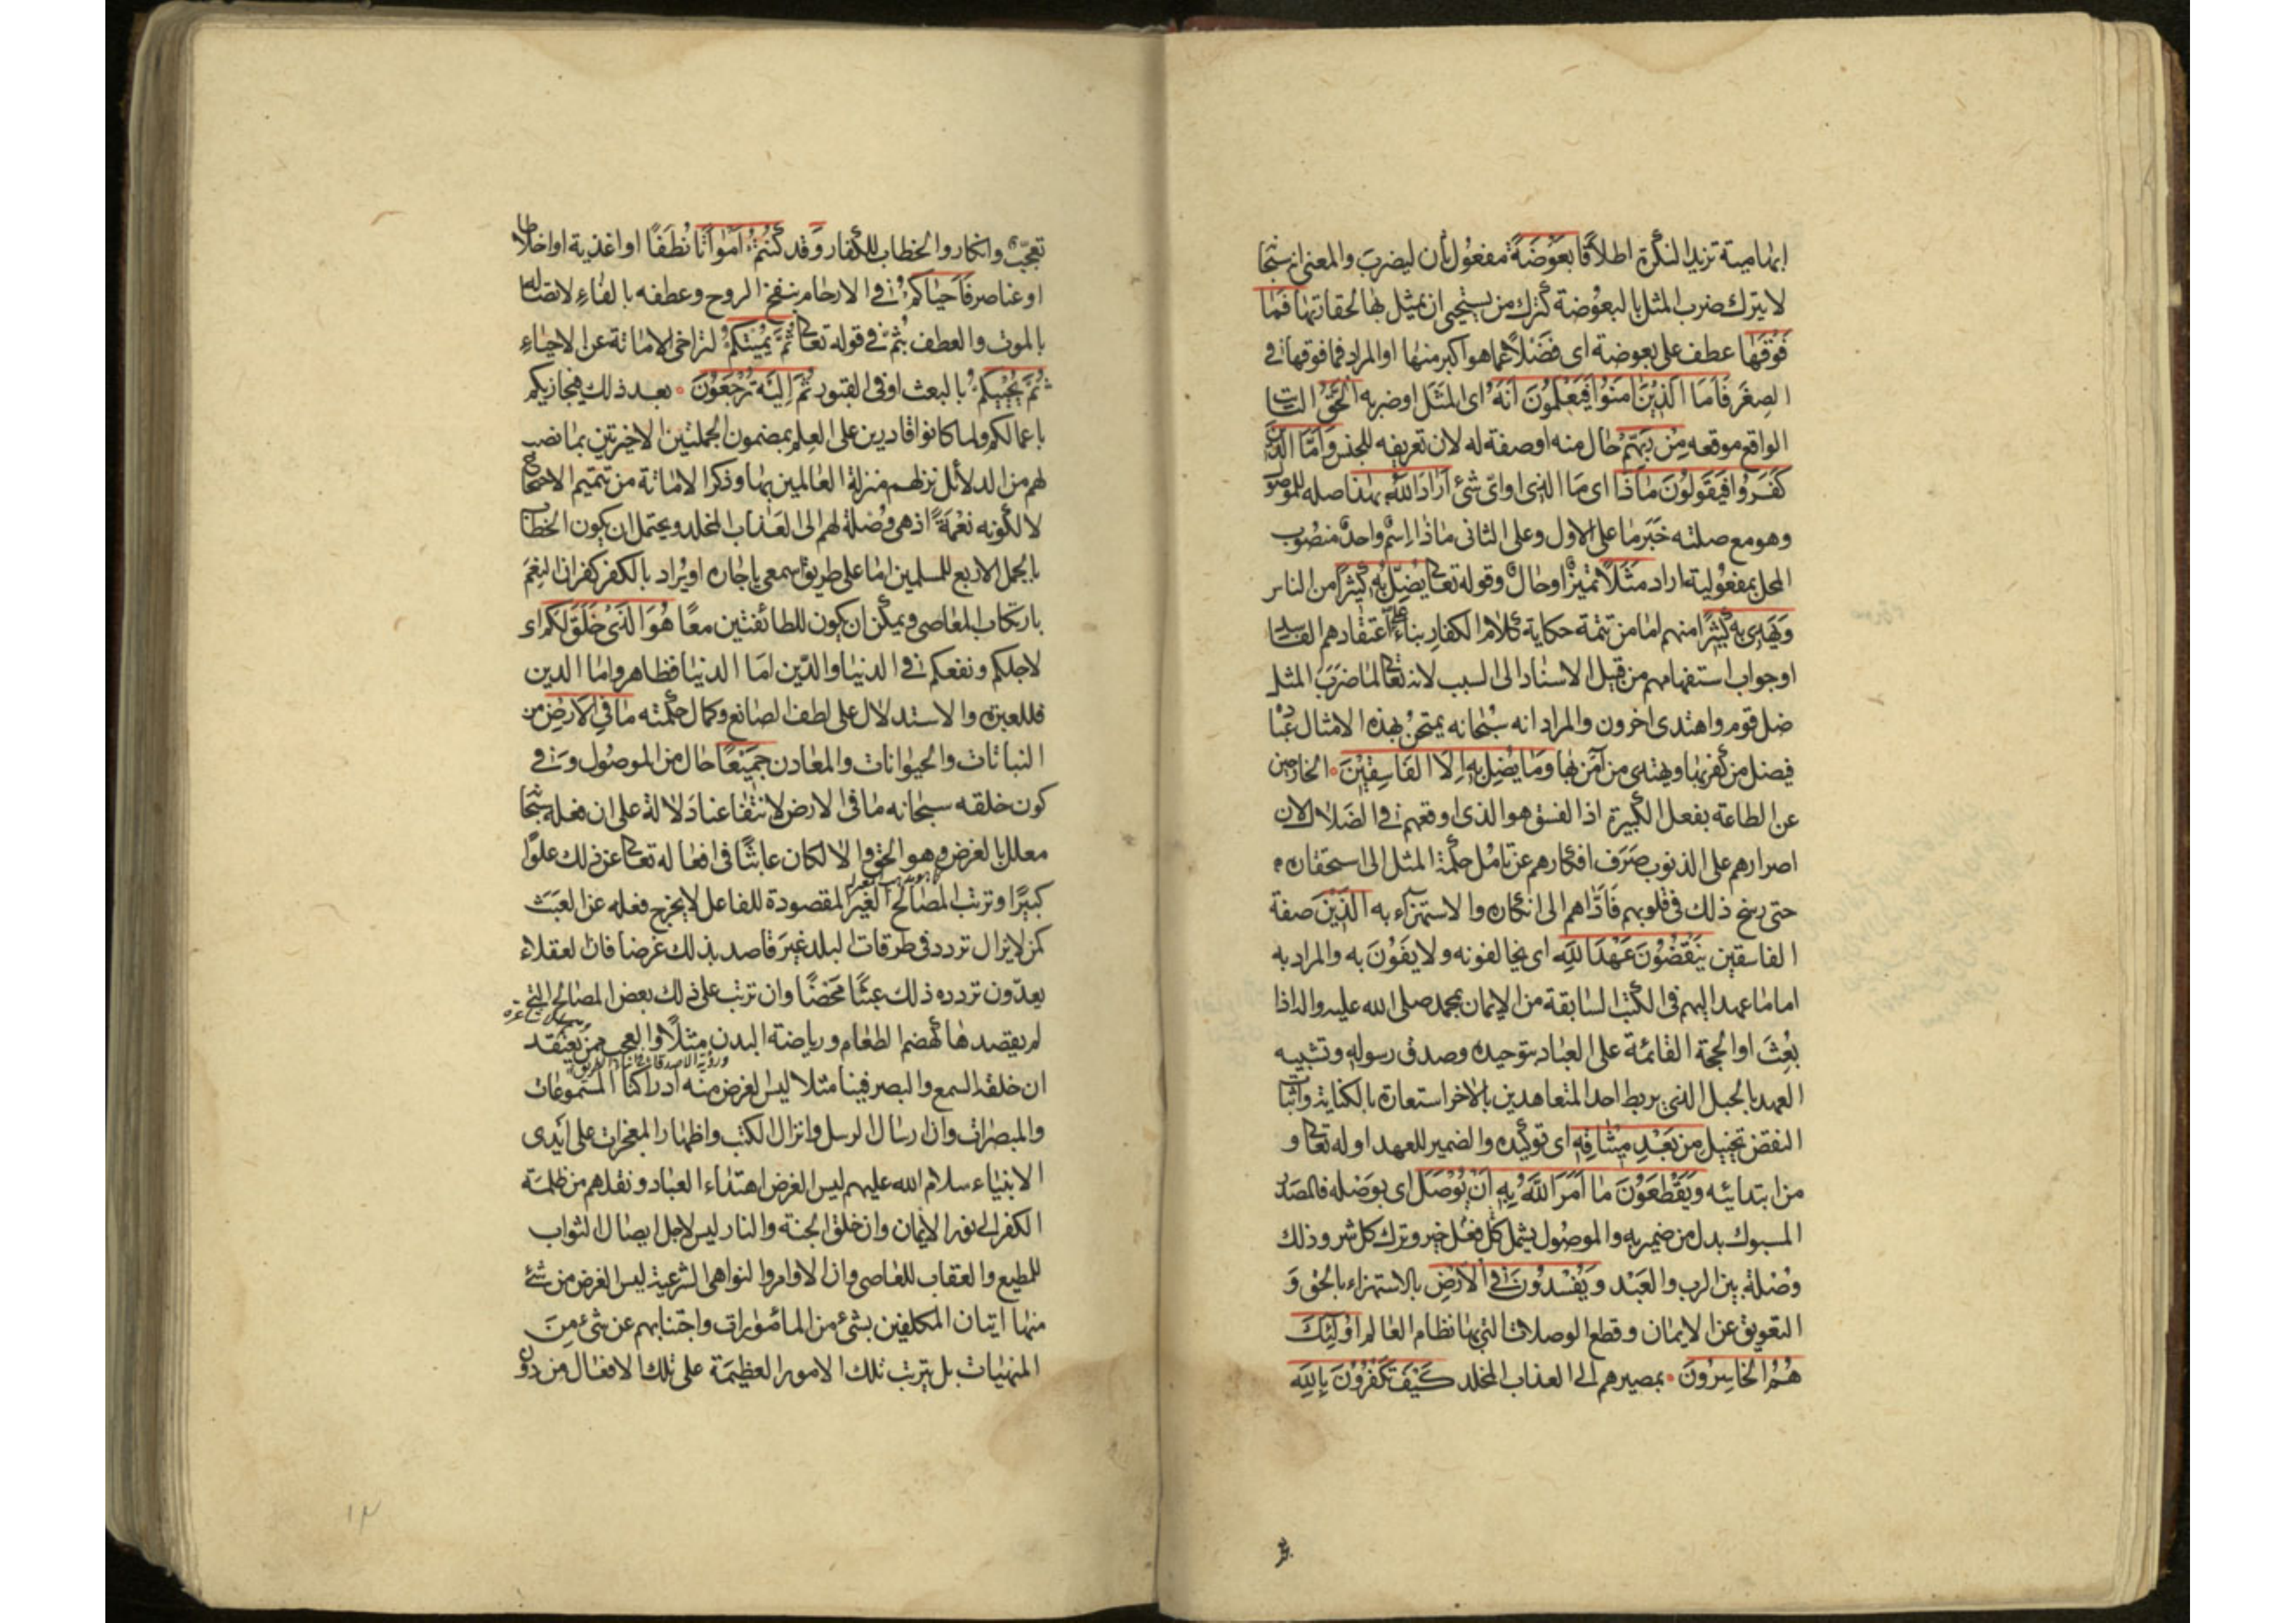 ابهامية تزيد النكرة اطلاقا بَعُوضَةً مفعول ثان ليضرب والمعنى انه سبحا
لا يترك ضرب المثل بالبعوضة كترك من يستحيى ان يمثل بها لحقارتها فَمَا
فَوْقَهَا عطف على بعوضة اى فضلا عما هو اكبر منها او المراد فما فوقها فى
الصغر فَاَمَّا الَّذِينَ اٰمَنُوا فَيَعْلَمُونَ اَنَّهُ اى المثل او ضربه الْحَقُّ الثابت
الواقع موقعه مِنْ رَبِّهِمْ حال منه او صفة له لان تعريفه للجنس وَاَمَّا الَّذِينَ
كَفَرُوا فَيَقُولُونَ مَاذَا اى ما الذى او اىّ شئ اَرَادَ اللّٰهُ بِهٰذَا صله للموصو
وهو مع صلته خبر ما على الاول وعلى الثانى ماذا اسم واحد منصوب
المحل بمفعولية اراد مَثَلًا تميز او حال وقوله تعالى يُضِلُّ بِهِ كَثِيرًا من الناس
وَيَهْدِى بِهِ كَثِيرًا منهم اما من تتمة حكاية كلام الكفار بناء على اعتقادهم الفاسد
او جواب استفهامهم من قبيل الاسناد الى السبب لانه تعالى لما ضرب المثل
ضل قوم واهتدى اخرون والمراد انه سبحانه يمتحن بهذه الامثال عباده
فيضل من كفر بها ويهتدى من آمن بها وَمَا يُضِلُّ بِهِ اِلَّا الْفَاسِقِينَ الخارجين
عن الطاعة بفعل الكبيرة اذ الفسق هو الذى اوقعهم فى الضلال لان
اصرارهم على الذنوب صرف افكارهم عن تامل حكمة المثل الى استحقاره
حتى رسخ ذلك فى قلوبهم فادّاهم الى انكاره والاستهزاء به الَّذِينَ صفة
الفاسقين يَنْقُضُونَ عَهْدَ اللّٰهِ اى يخالفونه ولا يفون به والمراد به
اما ما عهد اليهم فى الكتب السابقة من الايمان بمحمد صلى الله عليه واله اذا
بعث او الحجة القائمة على العباد بتوحيده وصدق رسوله وتشبيه
العهد بالحبل الذى يربط احد المتعاهدين بالاخر استعارة بالكناية واثبات
النقض تخييل مِنْ بَعْدِ مِيثَاقِهِ اى توكيده والضمير للعهد او له تعالى و
من ابتدائيه وَيَقْطَعُونَ مَا اَمَرَ اللّٰهُ بِهِ اَنْ يُوصَلَ اى بوصله فالمصدر
المسبوك بدل من ضمير به والموصول يشمل كل فعل خير وترك كل شر وذلك
وصلة بين الرب والعبد وَيُفْسِدُونَ فِى الْاَرْضِ بالاستهزاء بالحق و
التعويق عن الايمان وقطع الوصلات التى بها نظام العالم اُولٰئِكَ
هُمُ الْخَاسِرُونَ بمصيرهم الى العذاب المخلد كَيْفَ تَكْفُرُونَ بِاللّٰهِ
تعجيب وانكار والخطاب للكفار وَ قد كُنْتُمْ اَمْوَاتًا نُطَفًا او اغذية او اخلاطا
او عناصر فَاَحْيَاكُمْ فى الارحام بنفخ الروح وعطفه بالفاء لاتصاله
بالموت والعطف بثم فى قوله تعالى ثُمَّ يُمِيتُكُمْ لتراخى الاماتة عن الاحياء
ثُمَّ يُحْيِيكُمْ بالبعث او فى القبور ثُمَّ اِلَيْهِ تُرْجَعُونَ بعد ذلك فيجازيكم
باعمالكم ولما كانوا قادرين على العلم بمضمون الجملتين الاخيرتين بما نصب
لهم من الدلائل نزلهم منزلة العالمين بهما وذكر الاماتة من تتميم الاحتجاج
لا لكونه نعمة اذ هى وصلة لهم الى العذاب المخلد ويحتمل ان يكون الخطاب
بالجمل الاربع للمسلمين اما على طريق اسمعى ياجاره او يراد بالكفر كفران النعم
بارتكاب المعاصى ويمكن ان يكون للطائفتين معا هُوَ الَّذِى خَلَقَ لَكُمْ اى
لاجلكم ونفعكم فى الدنيا والدّين اما الدنيا فظاهر واما الدين
فللعبرة والاستدلال على لطف الصانع وكمال حكمته مَا فِى الْاَرْضِ من
النباتات والحيوانات والمعادن جَمِيعًا حال من الموصول و فى
كون خلقه سبحانه ما فى الارض لانتفاعنا دلالة على ان فعله سبحا
معلل بالغرض وهو الحق والا لكان عابثا فى افعاله تعالى عن ذلك علوا
كبيرا وترتب المصالح الغير المقصودة للفاعل لا يخرج فعله عن العبث
كمن لا يزال تردد فى طرقات البلد غير قاصد بذلك غرضا فان العقلاء
يعدّون تردده ذلك عبثا محضا وان ترتب على ذلك بعض المصالح التى
لم يقصدها كهضم الطعام ورياضة البدن مثلا والعجب ممن يعتقد
ان خلقه السمع والبصر فينا مثلا ليس الغرض منه ادراكنا المسموعات
والمبصرات وان ارسال الرسل وانزال الكتب واظهار المعجزات على ايدى
الانبياء سلام الله عليهم ليس الغرض اهتداء العباد ونقلهم من ظلمة
الكفر الى نور الايمان وان خلق الجنة والنار ليس لاجل ايصال الثواب
للمطيع والعقاب للعاصى وان الاوامر والنواهى الشرعية ليس الغرض من شئ
منها اتيان المكلفين بشئ من المأمورات واجتنابهم عن شئ من
المنهيات بل يترتب تلك الامور العظيمة على تلك الافعال من دون